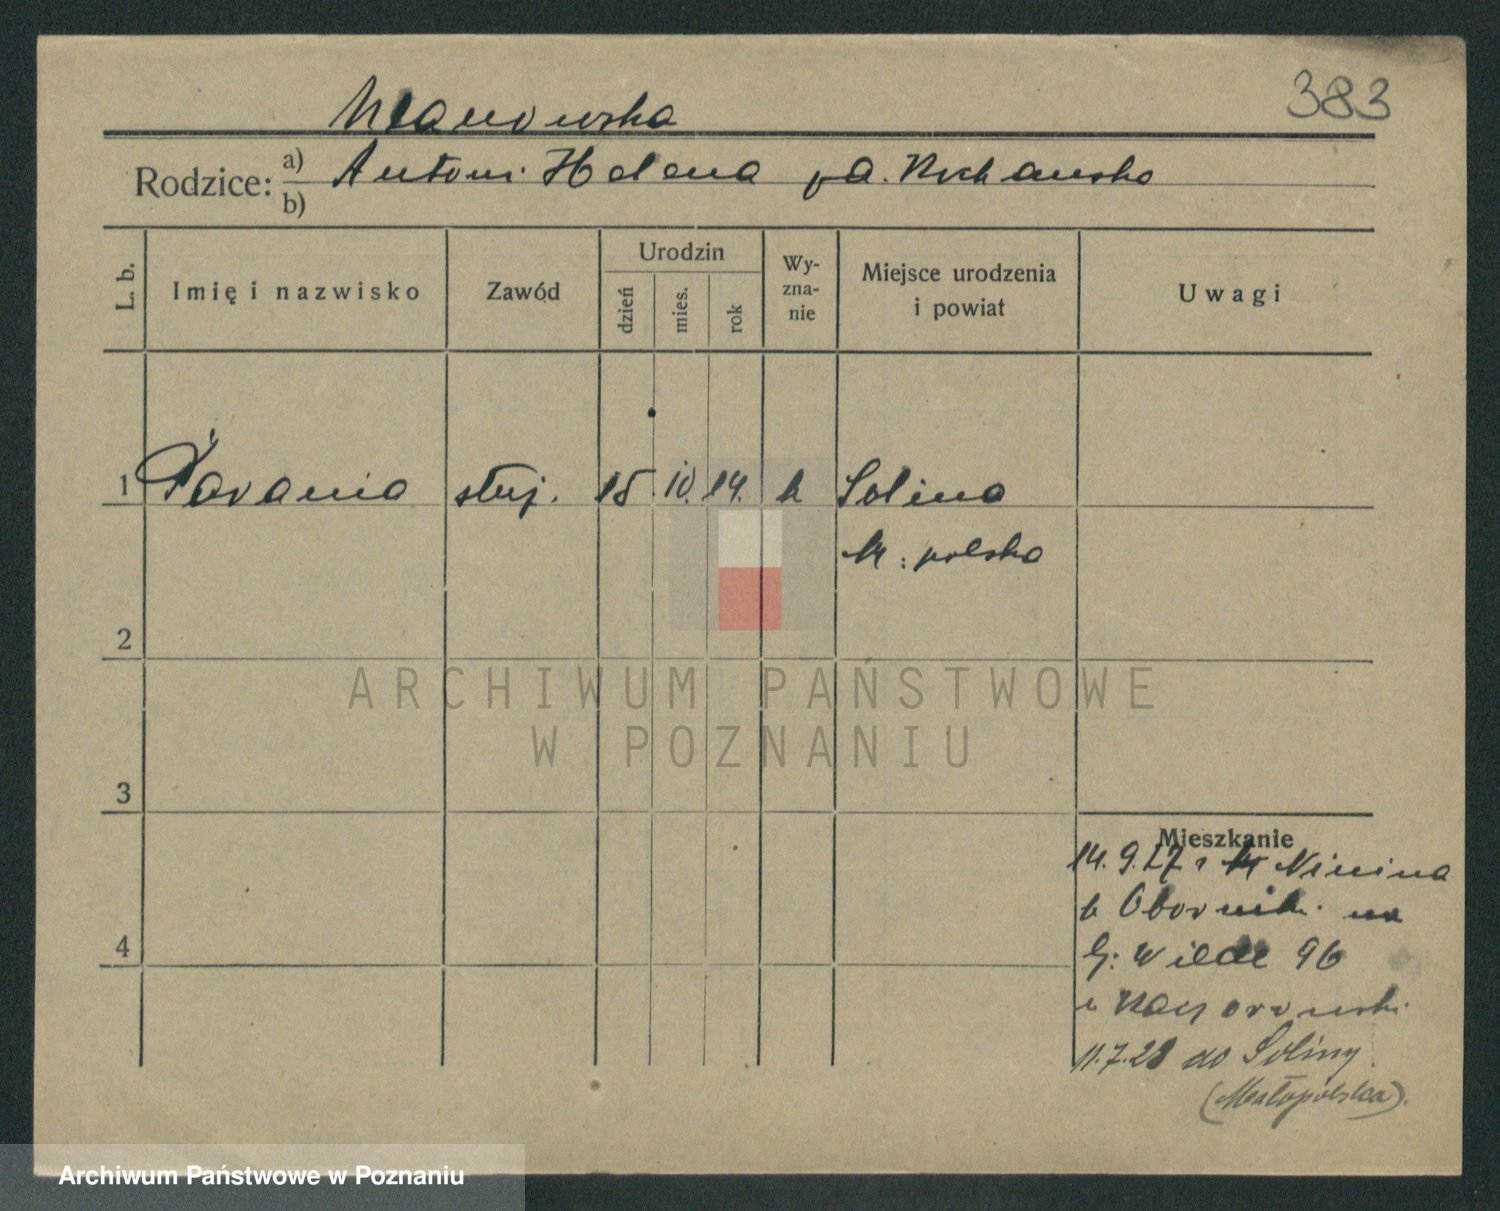 383
Rodzice: a) Antoni. Helena
b)
L. b. Imię i nazwisko Zawód Urodzin dzień mies. rok Wy-zna-nie Miejsce urodzenia i powiat Uwagi
1 służ. 15. 10. 14. k Solina
M: polska
2
ARCHIWUM PAŃSTWOWE
W POZNANIU
3
Mieszkanie
14. 9. 27 Ninina
b Obornik. na
G: Wilde 96
4
11.7.28 do Soliny
(Małopolska).
Archiwum Państwowe w Poznaniu